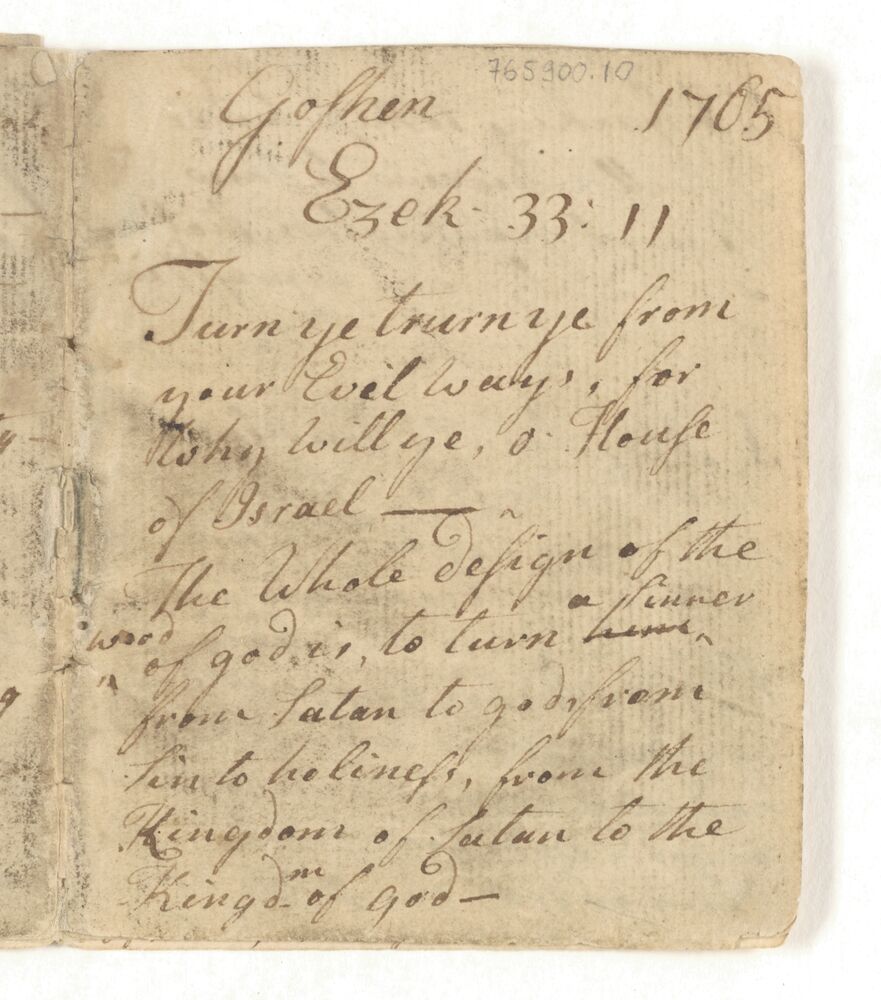 765900.10
Goſhen 1765
Ezek 33: 11
Turn ye trurn ye from
your Evil ways, for
Why will ye, o House
of Israel —
The Whole deſign of the
word of god is, to turn him a ſinner
from Satan to god, from
Sin to holineſs, from the
Kingdom of Satan to the
Kingdm of god —